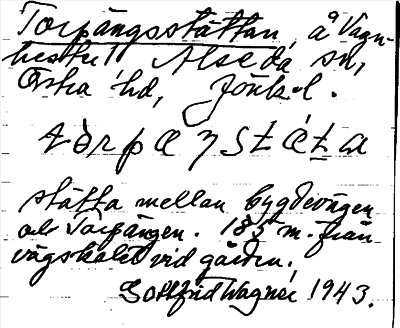 Torpängsstättan, å Vagn-
hestel Alseda sn,
Östra hd, Jönk. l.
tòrpæŋstǽta
stätta mellan bygdevägen
och Torpängen. 185 m. från
vägskälet vid gården.
Gottfrid Wagnér 1943.